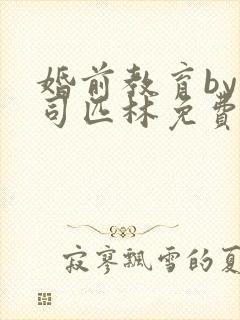 婚前教育by
司匹林免費
寂寥飄雪的夏